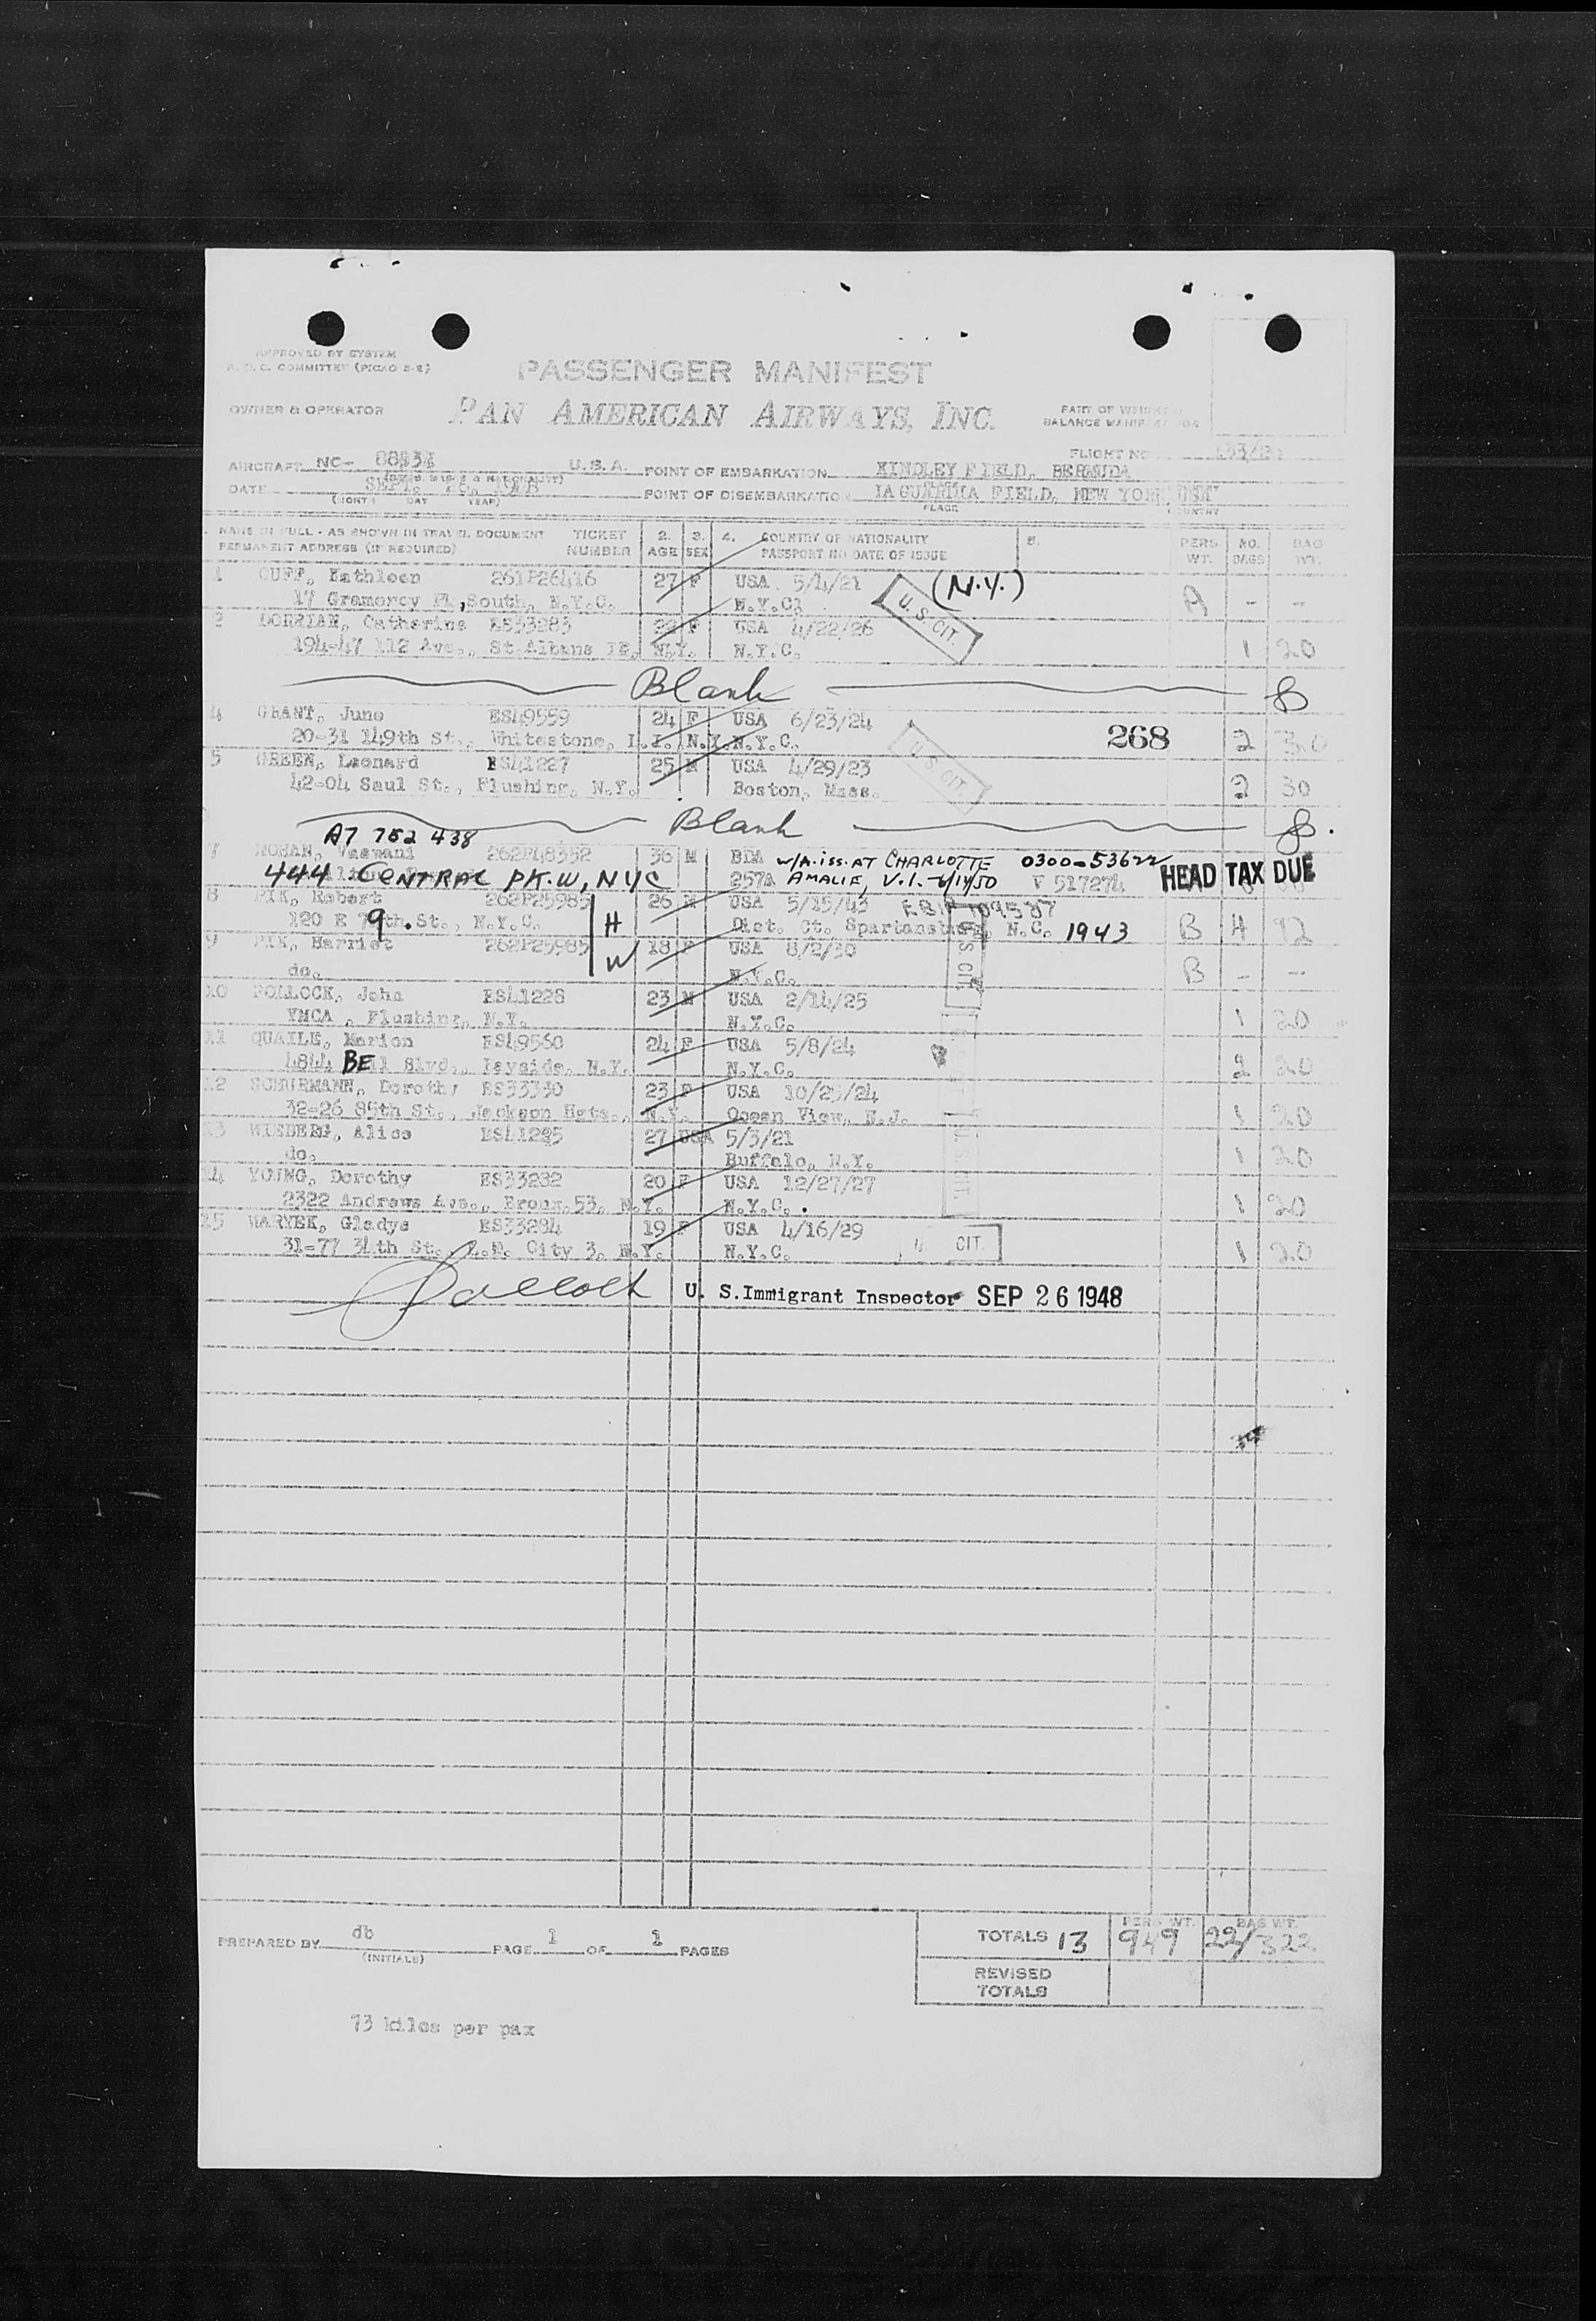 APPROVED BY SYSTEM
COMMITTEE (PICAO 2-2)
PASSENGER MANIFEST
OWNER & OPERATOR PAN AMERICAN AIRWAYS, INC.
PART OF WEIGHT &
BALANCE MANIFEST
FLIGHT NO
AIRCRAFT NC- U.S.A. POINT OF EMBARKATION KINDLEY FIELD, BERMUDA
DATE SEPT. POINT OF DISEMBARKATION LA GUARDIA FIELD, NEW YORK USA
DAY YEAR) PLACE COUNTRY
NAME IN FULL - AS SHOWN IN TRAVEL DOCUMENT TICKET 2. 3. 4. COUNTRY OF NATIONALITY 5. PERS. NO. BAG
PERMANENT ADDRESS (IF REQUIRED) NUMBER AGE SEX PASSPORT NO DATE OF ISSUE WT. BAGS WT.
1 CUFF, Kathleen 261P26416 27 F USA 5/4/21 (N.Y.) A - -
17 Gramercy Pl, South, N.Y.C. N.Y.C. U.S. CIT.
2 DORRIAN, Catherine ES33283 22 F USA 4/22/26
194-47 112 Ave., St Albans 12, N.Y. N.Y.C. 1 20
Blank
4 GRANT, June ES49559 24 F USA 6/23/24
20-31 149th St., Whitestone, L.I. N.Y. N.Y.C. 268 2 30
5 GREEN, Leonard ES41227 25 M USA 4/29/23 U.S. CIT.
42-04 Saul St., Flushing, N.Y. Boston, Mass. 2 30
Blank
A7 752 438
7 MOHAN, Vaswani 262P48352 36 M BDA W/A. ISS. AT CHARLOTTE 0300-53622
444 CENTRAL PK. W, NYC 257A AMALIE, V.I. V 517274 HEAD TAX DUE
8 PIK, Robert 262P25985 H 26 M USA 5/15/43
120 E 79th. St., N.Y.C. Dist. Ct. Spartansburg, N.C. 1943 B 4 92
9 PIK, Harriet 262P25985 W 18 F USA 8/2/30 U.S. CIT.
do. N.Y.C. B - -
10 POLLOCK, John ES41228 23 M USA 2/14/25
YMCA, Flushing, N.Y. N.Y.C. 1 20
11 QUAILE, Marion ES49560 24 F USA 5/8/24
4844 BEll Blvd., Bayside, N.Y. N.Y.C. 2 20
12 SCHURMANN, Dorothy ES33330 23 F USA 10/25/24
32-26 85th St., Jackson Hgts., N.Y. Ocean View, N.J. 1 20
13 WIEDERG, Alice ES41285 27 USA 5/3/21
do. Buffalo, N.Y. 1 20
14 YOUNG, Dorothy ES33282 20 F USA 12/27/27
2322 Andrews Ave., Bronx 53, N.Y. N.Y.C. 1 20
15 WARYEK, Gladys ES33284 19 F USA 4/16/29
31-77 34th St. L.I. City 3, N.Y. N.Y.C. U CIT. 1 20
U. S. Immigrant Inspector SEP 26 1948
PREPARED BY db PAGE 1 OF 1 PAGES
(INITIALS)
PERS. WT. BAG WT.
TOTALS 13 949 22/322
REVISED
TOTALS
73 kilos per pax